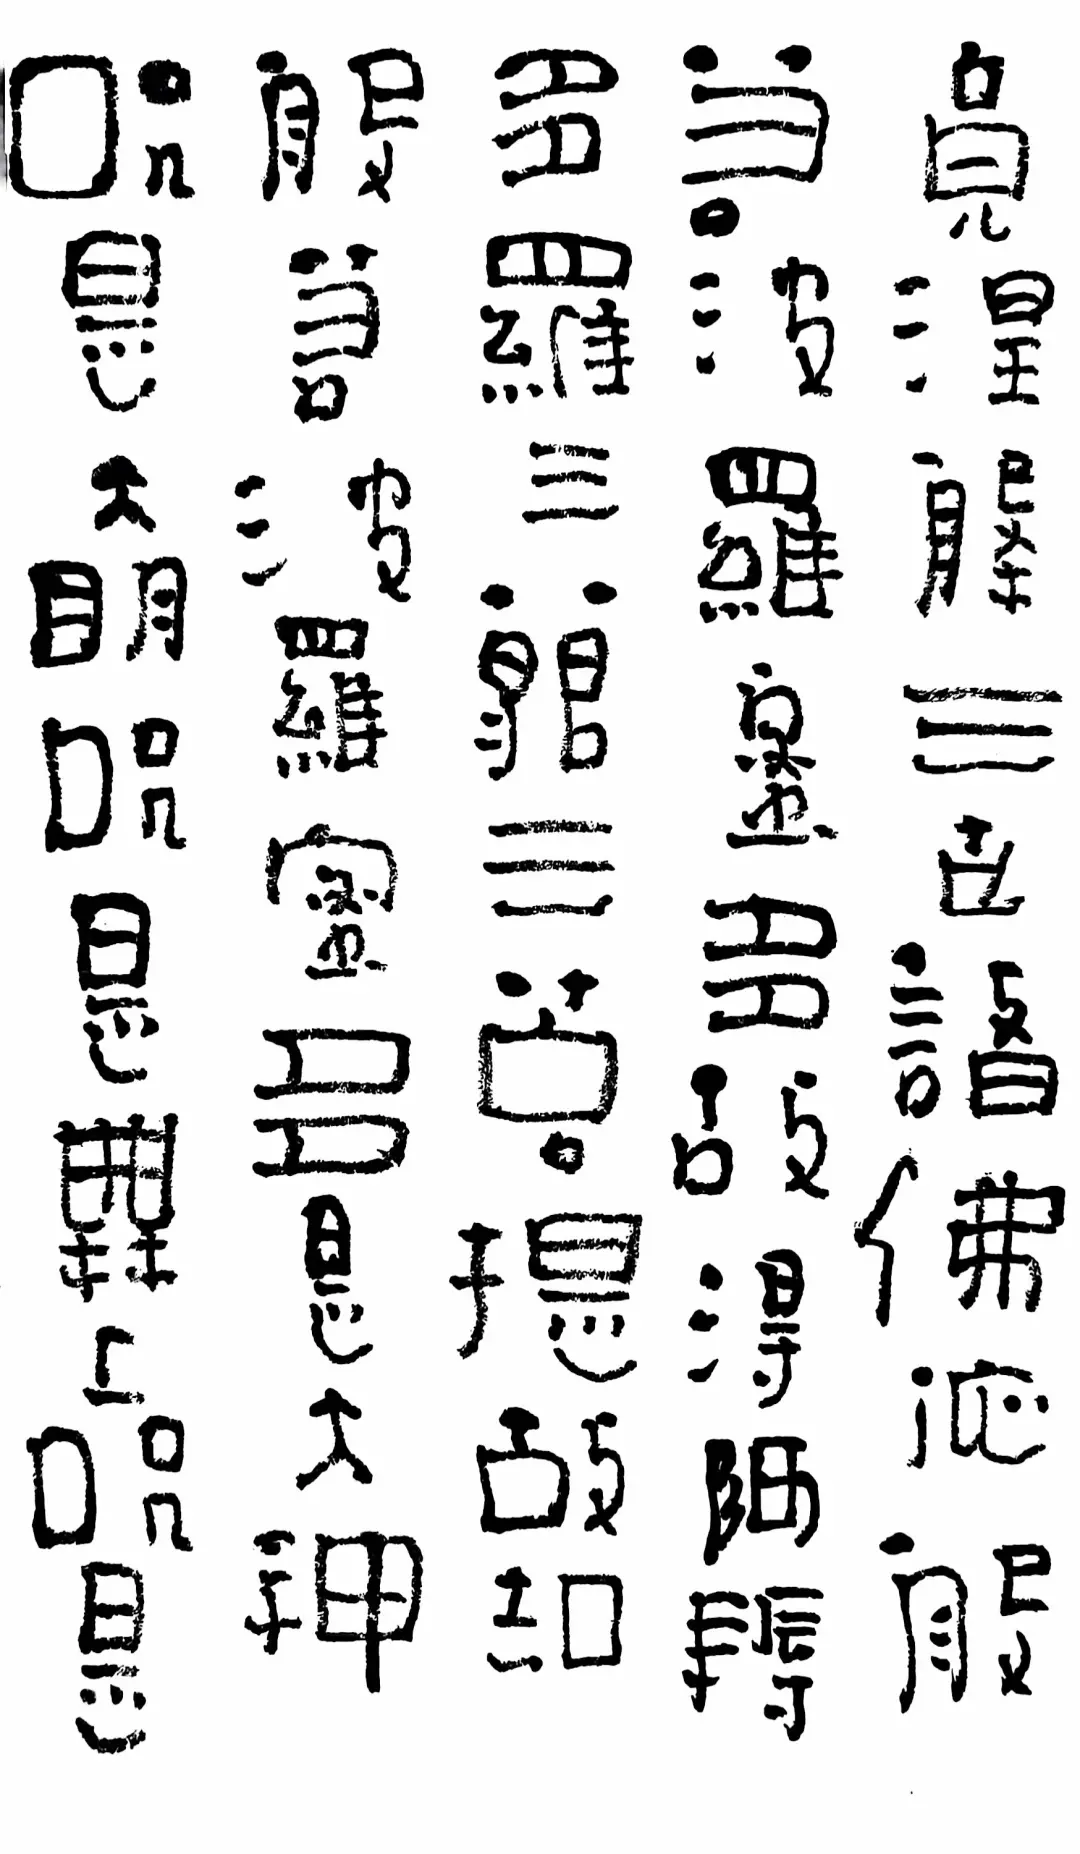 竟涅槃三世諸佛依般
若波羅蜜多故得阿耨
多羅三藐三菩提故知
般若波羅蜜多是大神
咒是大明咒是無上咒是